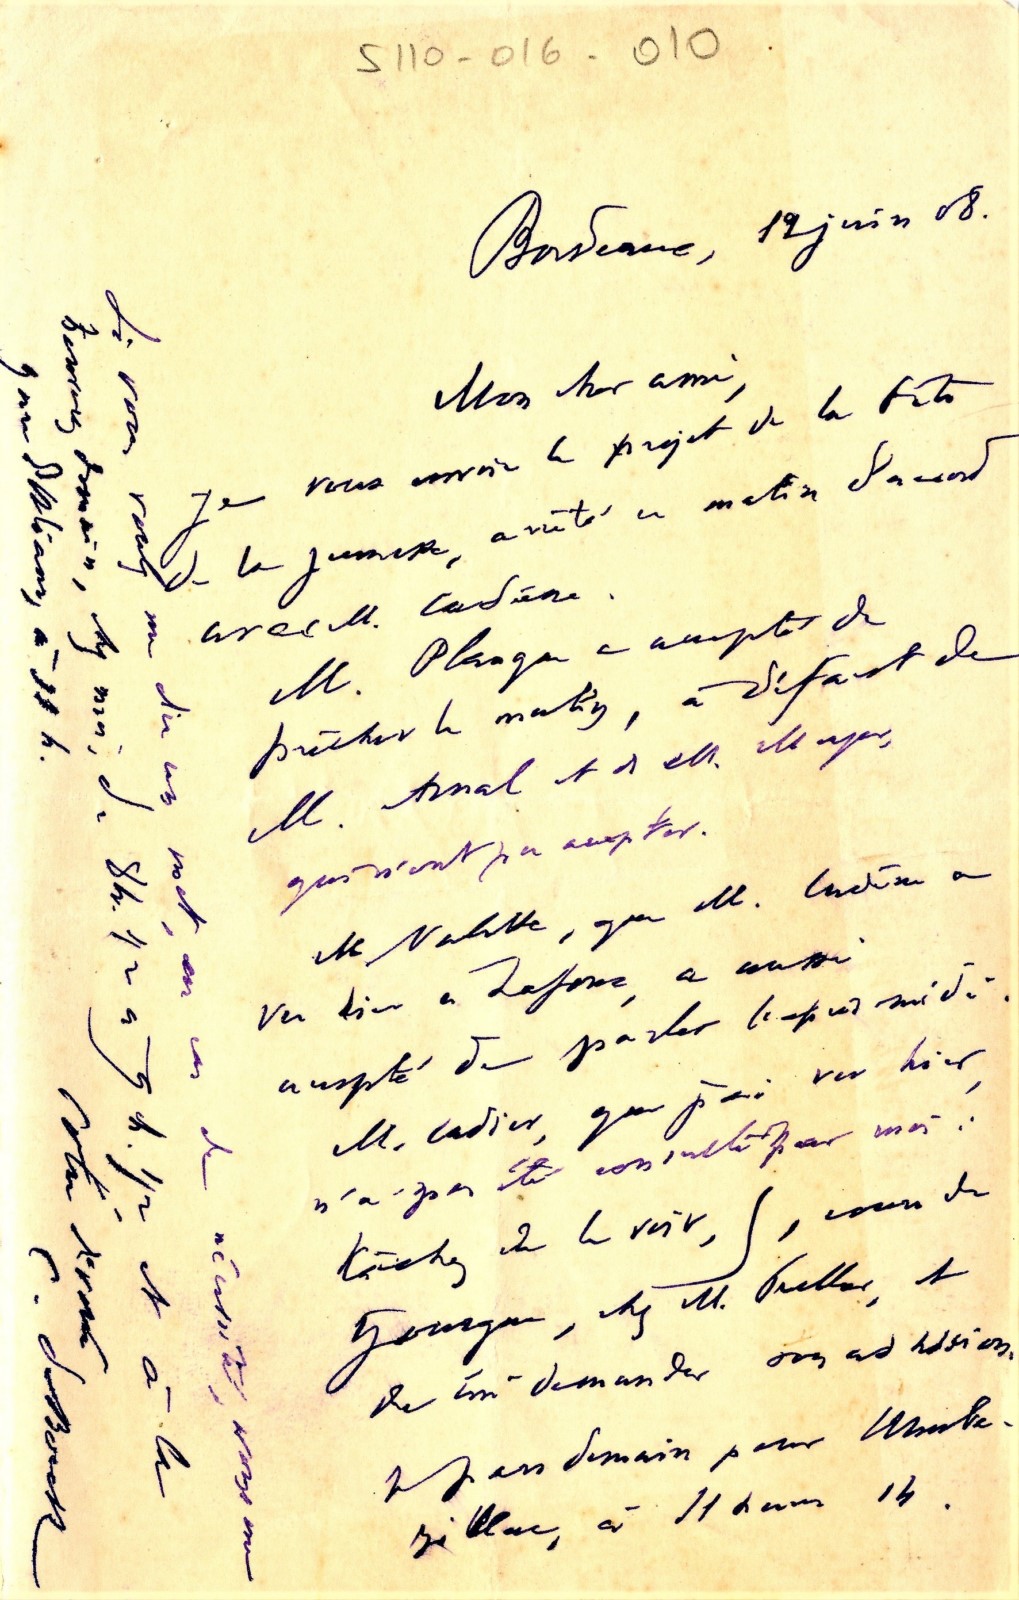 5110-016-010
Bordeaux, 12 juin 08.
Mon cher ami,
Je vous envoie le projet de la fête
de la jeunesse, arrêté ce matin d'accord
avec M. Cadène.
M. Planque a accepté de
prêcher le matin, à défaut de
M. Arnal et de M. Meyer,
qui n'ont pu accepter.
M. Valette, que M. Cadène a
vu hier à Laforce, a aussi
accepté de parler l'après midi.
M. Cadier, que j'ai vu hier,
n'a pas été consulté par moi :
tâchez de le voir, , cours de
Gourgue, chez M. et
de lui demander son adhésion.
Je pars demain pour
à 11 heures 14.
Si vous voulez me dire un mot, en cas de nécessité, vous me
trouverez demain, chez moi, de 8h. 1/2 à 9 h. 1/2 et à la
gare d'Orléans, à 11 h.
Votre dévoué